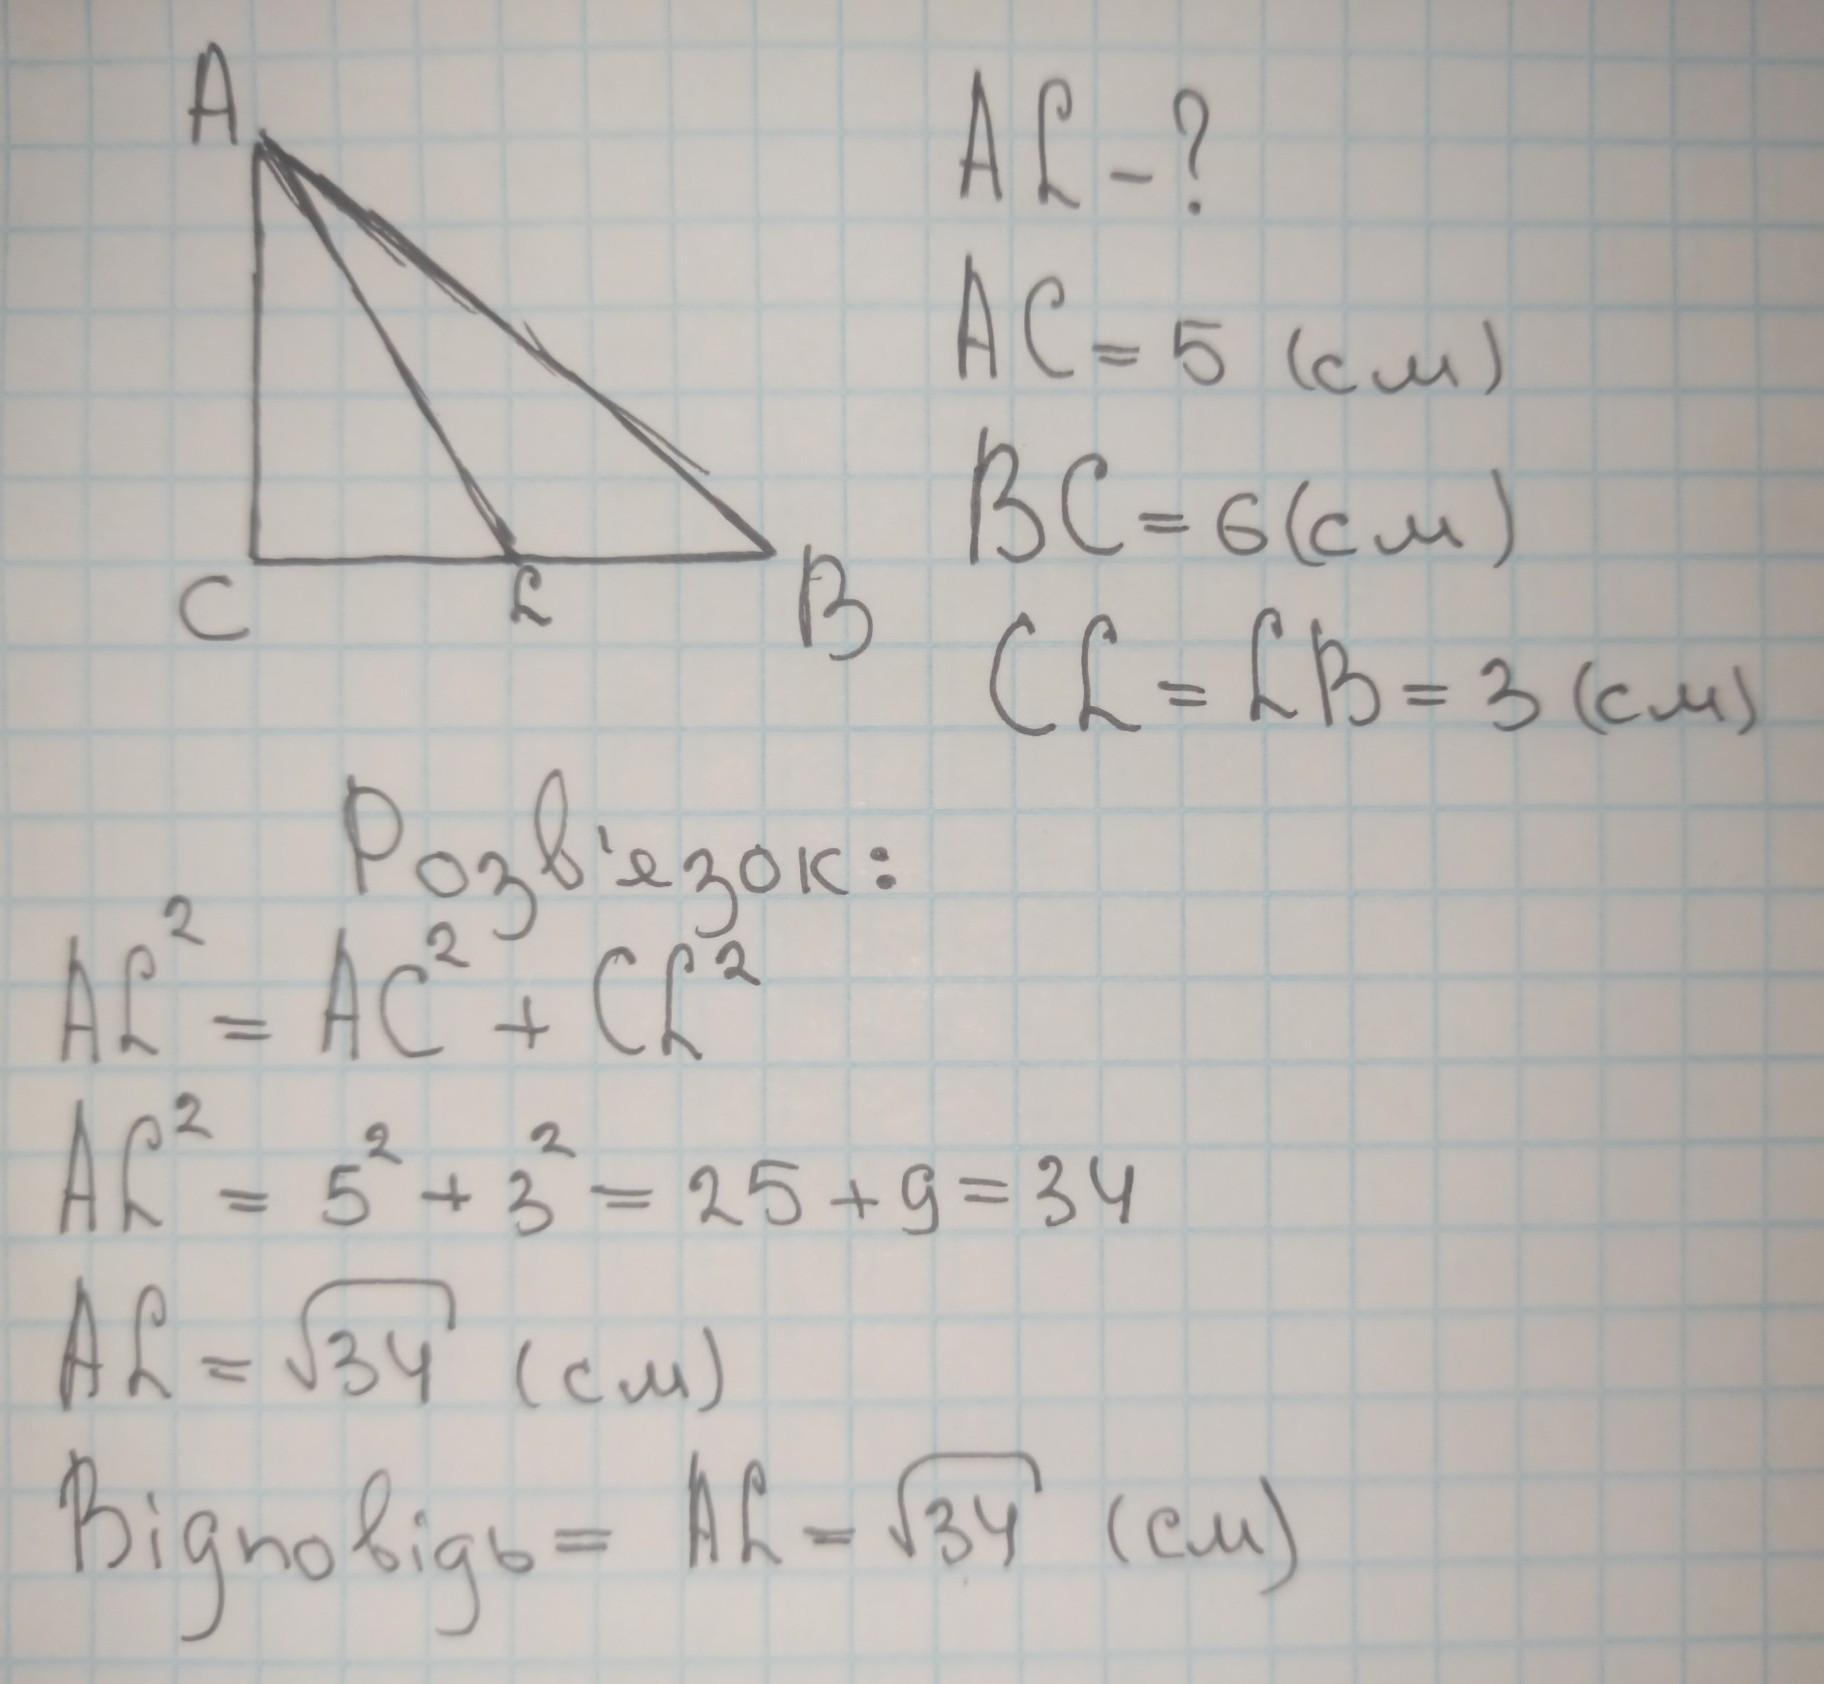 A
C
L
B
AL - ?
AC = 5 (см)
BC = 6 (см)
CL = LB = 3 (см)
Розв'язок:
AL² = AC² + CL²
AL² = 5² + 3² = 25 + 9 = 34
AL = √34 (см)
Відповідь = AL = √34 (см)